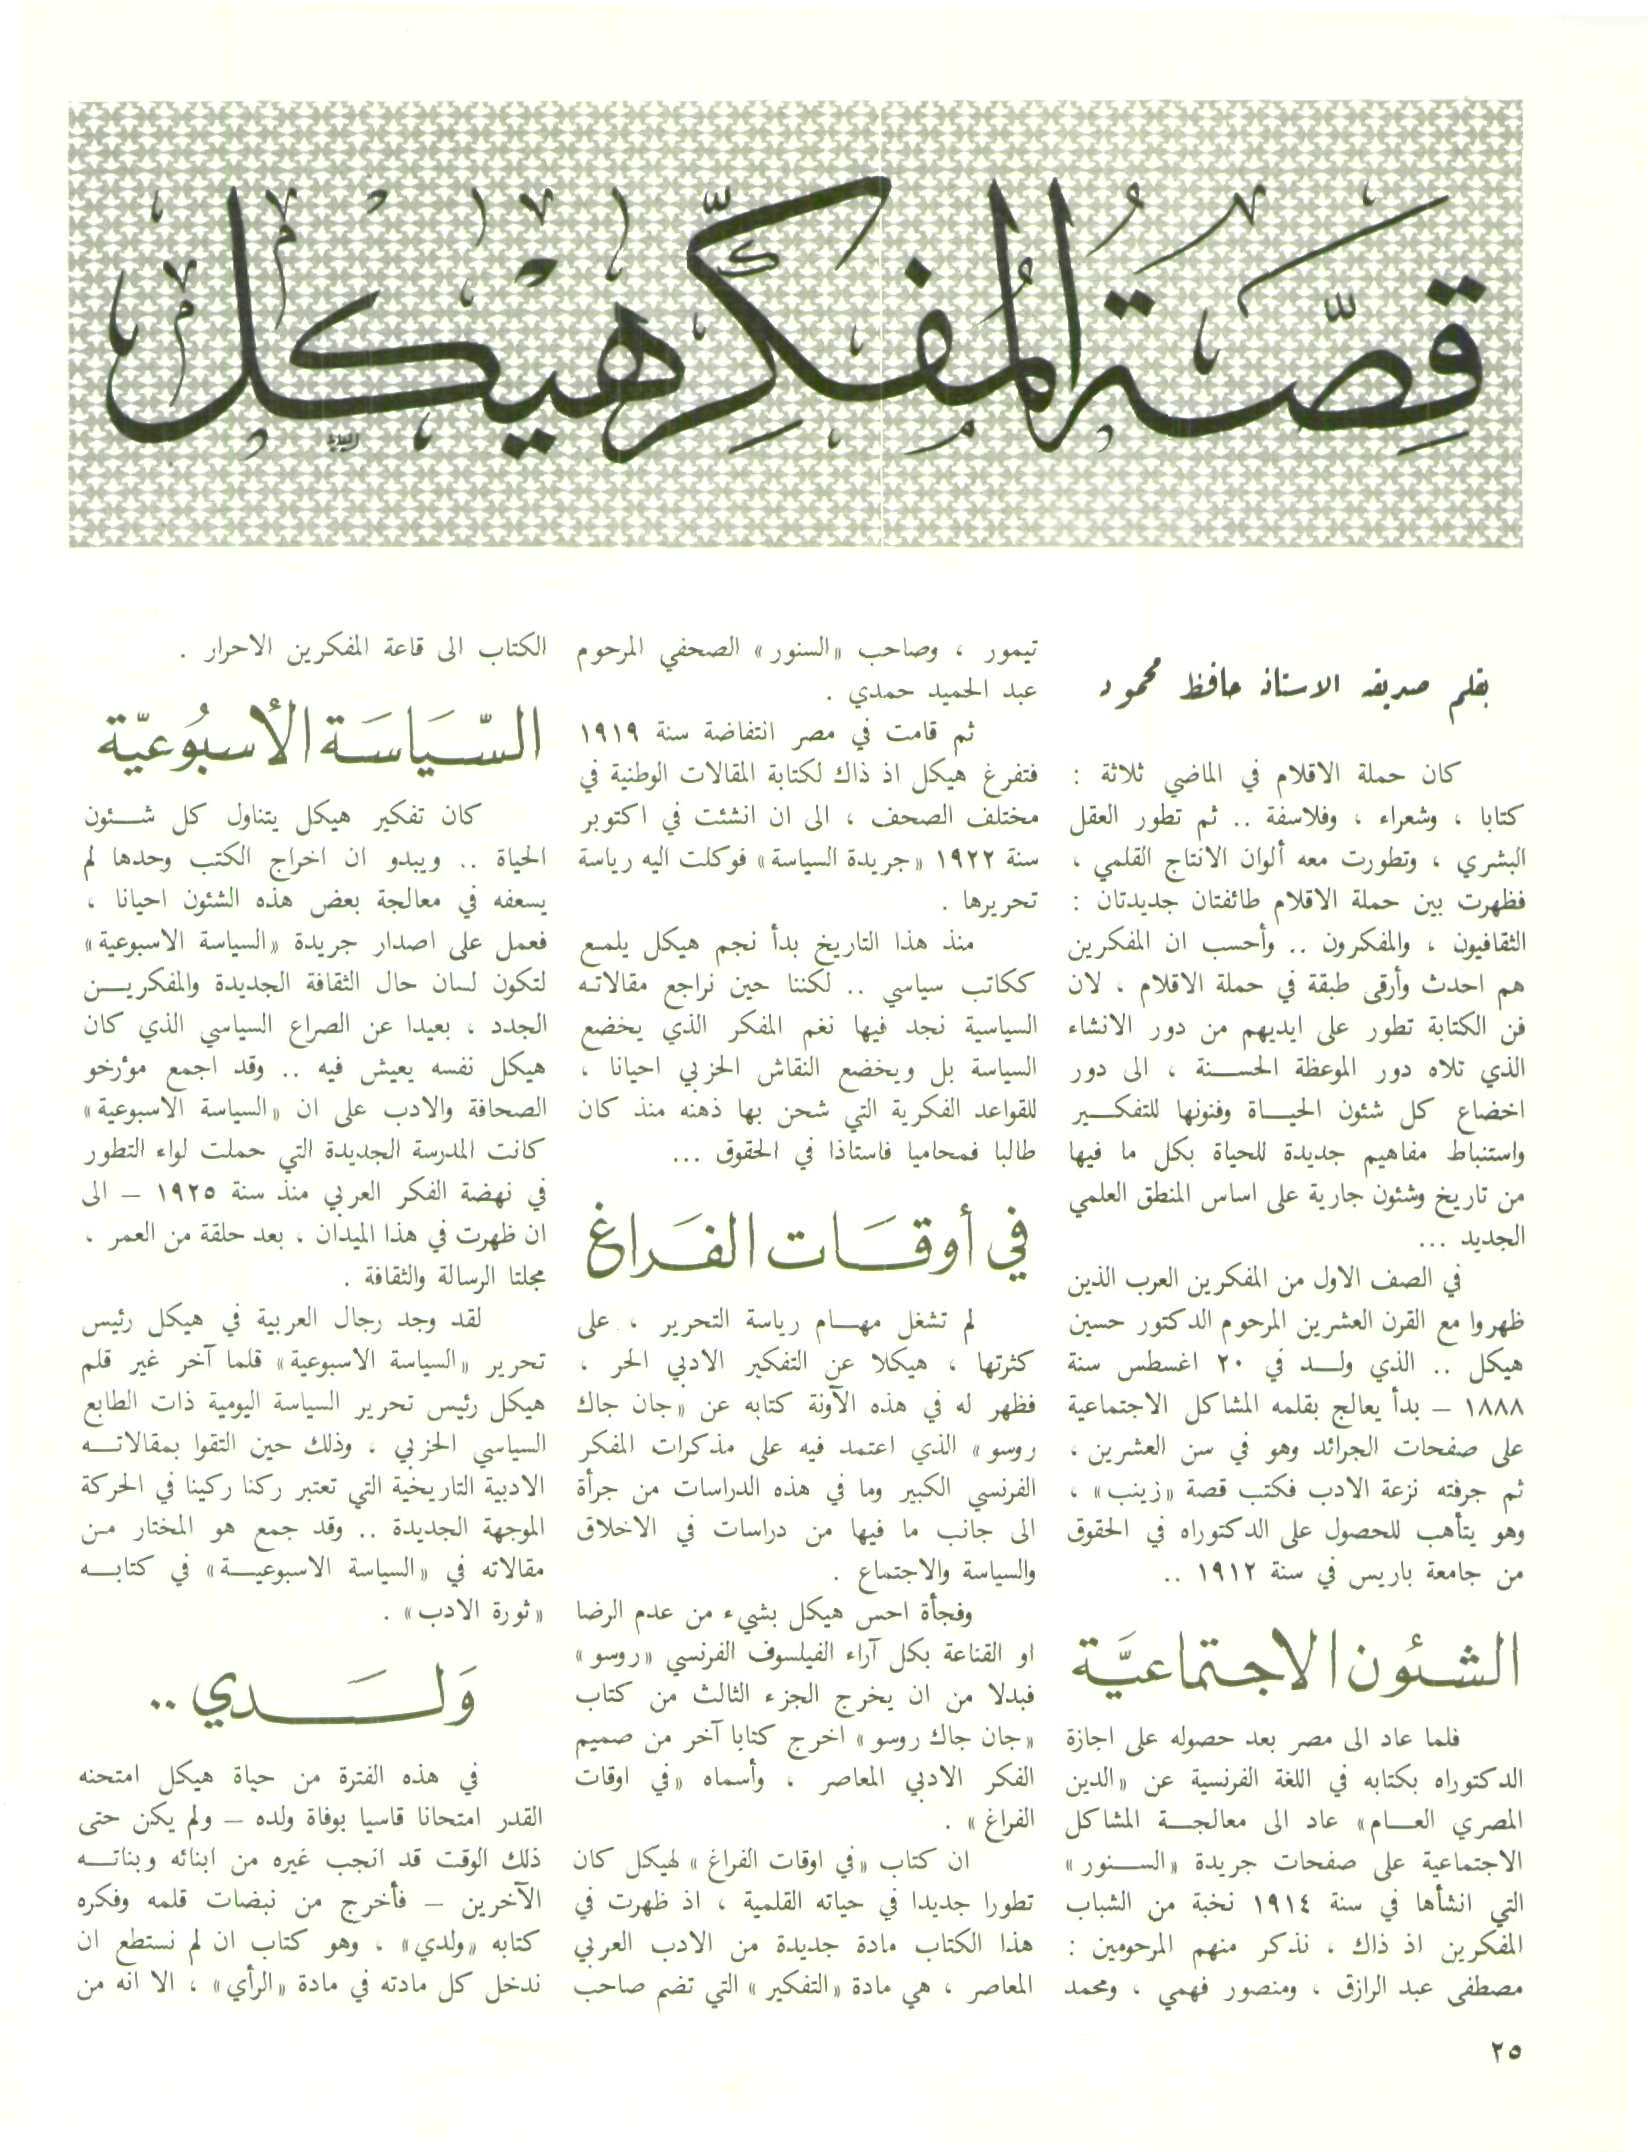 قِصَّةُ المُفَكِّر هيكل
بقلم صديقه الاستاذ حافظ محمود
كان حملة الاقلام في الماضي ثلاثة :
كتابا ، وشعراء ، وفلاسفة .. ثم تطور العقل
البشري ، وتطورت معه ألوان الانتاج القلمي ،
فظهرت بين حملة الاقلام طائفتان جديدتان :
الثقافيون ، والمفكرون .. وأحسب ان المفكرين
هم احدث وأرقى طبقة في حملة الاقلام ، لان
فن الكتابة تطور على ايديهم من دور الانشاء
الذي تلاه دور الموعظة الحسنة ، الى دور
اخضاع كل شئون الحياة وفنونها للتفكير
واستنباط مفاهيم جديدة للحياة بكل ما فيها
من تاريخ وشئون جارية على اساس المنطق العلمي
الجديد ...
في الصف الاول من المفكرين العرب الذين
ظهروا مع القرن العشرين المرحوم الدكتور حسين
هيكل .. الذي ولد في ٢٠ اغسطس سنة
١٨٨٨ – بدأ يعالج بقلمه المشاكل الاجتماعية
على صفحات الجرائد وهو في سن العشرين ،
ثم جرفته نزعة الادب فكتب قصة «زينب» ،
وهو يتأهب للحصول على الدكتوراه في الحقوق
من جامعة باريس في سنة ١٩١٢ ..
الشئون الاجتماعيَّة
فلما عاد الى مصر بعد حصوله على اجازة
الدكتوراه بكتابه في اللغة الفرنسية عن «الدين
المصري العام» عاد الى معالجة المشاكل
الاجتماعية على صفحات جريدة «السنور»
التي انشأها في سنة ١٩١٤ نخبة من الشباب
المفكرين اذ ذاك ، نذكر منهم المرحومين :
مصطفى عبد الرازق ، ومنصور فهمي ، ومحمد
تيمور ، وصاحب «السنور» الصحفي المرحوم
عبد الحميد حمدي .
ثم قامت في مصر انتفاضة سنة ١٩١٩
فتفرغ هيكل اذ ذاك لكتابة المقالات الوطنية في
مختلف الصحف ، الى ان انشئت في اكتوبر
سنة ١٩٢٢ «جريدة السياسة» فوكلت اليه رياسة
تحريرها .
منذ هذا التاريخ بدأ نجم هيكل يلمع
ككاتب سياسي .. لكننا حين نراجع مقالاته
السياسية نجد فيها نغم المفكر الذي يخضع
السياسة بل ويخضع النقاش الحزبي احيانا ،
للقواعد الفكرية التي شحن بها ذهنه منذ كان
طالبا فمحاميا فاستاذا في الحقوق ...
في أوقَات الفَراغ
لم تشغل مهام رياسة التحرير ، على
كثرتها ، هيكلا عن التفكير الادبي الحر ،
فظهر له في هذه الآونة كتابه عن «جان جاك
روسو» الذي اعتمد فيه على مذكرات المفكر
الفرنسي الكبير وما في هذه الدراسات من جرأة
الى جانب ما فيها من دراسات في الاخلاق
والسياسة والاجتماع .
وفجأة احس هيكل بشيء من عدم الرضا
او القناعة بكل آراء الفيلسوف الفرنسي «روسو»
فبدلا من ان يخرج الجزء الثالث من كتاب
«جان جاك روسو» اخرج كتابا آخر من صميم
الفكر الادبي المعاصر ، وأسماه «في اوقات
الفراغ» .
ان كتاب «في اوقات الفراغ» لهيكل كان
تطورا جديدا في حياته القلمية ، اذ ظهرت في
هذا الكتاب مادة جديدة من الادب العربي
المعاصر ، هي مادة «التفكير» التي تضم صاحب
الكتاب الى قاعة المفكرين الاحرار .
السّيَاسَة الأسبُوعيّة
كان تفكير هيكل يتناول كل شئون
الحياة .. ويبدو ان اخراج الكتب وحدها لم
يسعفه في معالجة بعض هذه الشئون احيانا ،
فعمل على اصدار جريدة «السياسة الاسبوعية»
لتكون لسان حال الثقافة الجديدة والمفكرين
الجدد ، بعيدا عن الصراع السياسي الذي كان
هيكل نفسه يعيش فيه .. وقد اجمع مؤرخو
الصحافة والادب على ان «السياسة الاسبوعية»
كانت المدرسة الجديدة التي حملت لواء التطور
في نهضة الفكر العربي منذ سنة ١٩٢٥ – الى
ان ظهرت في هذا الميدان ، بعد حلقة من العمر ،
مجلتا الرسالة والثقافة .
لقد وجد رجال العربية في هيكل رئيس
تحرير «السياسة الاسبوعية» قلما آخر غير قلم
هيكل رئيس تحرير السياسة اليومية ذات الطابع
السياسي الحزبي ، وذلك حين التقوا بمقالاته
الادبية التاريخية التي تعتبر ركنا ركينا في الحركة
الموجهة الجديدة .. وقد جمع هو المختار من
مقالاته في «السياسة الاسبوعية» في كتابه
«ثورة الادب» .
وَلَدي ..
في هذه الفترة من حياة هيكل امتحنه
القدر امتحانا قاسيا بوفاة ولده – ولم يكن حتى
ذلك الوقت قد انجب غيره من ابنائه وبناته
الآخرين – فأخرج من نبضات قلمه وفكره
كتابه «ولدي» ، وهو كتاب ان لم نستطع ان
ندخل كل مادته في مادة «الرأي» ، الا انه من
٢٥